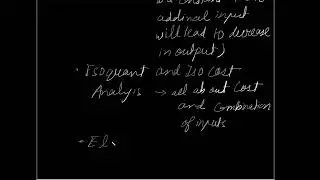 addinal input
will lead to decrease
in output)
• Isoquant and Iso Cost
Analyis → all about Cost
and Combination
of inputs
• El